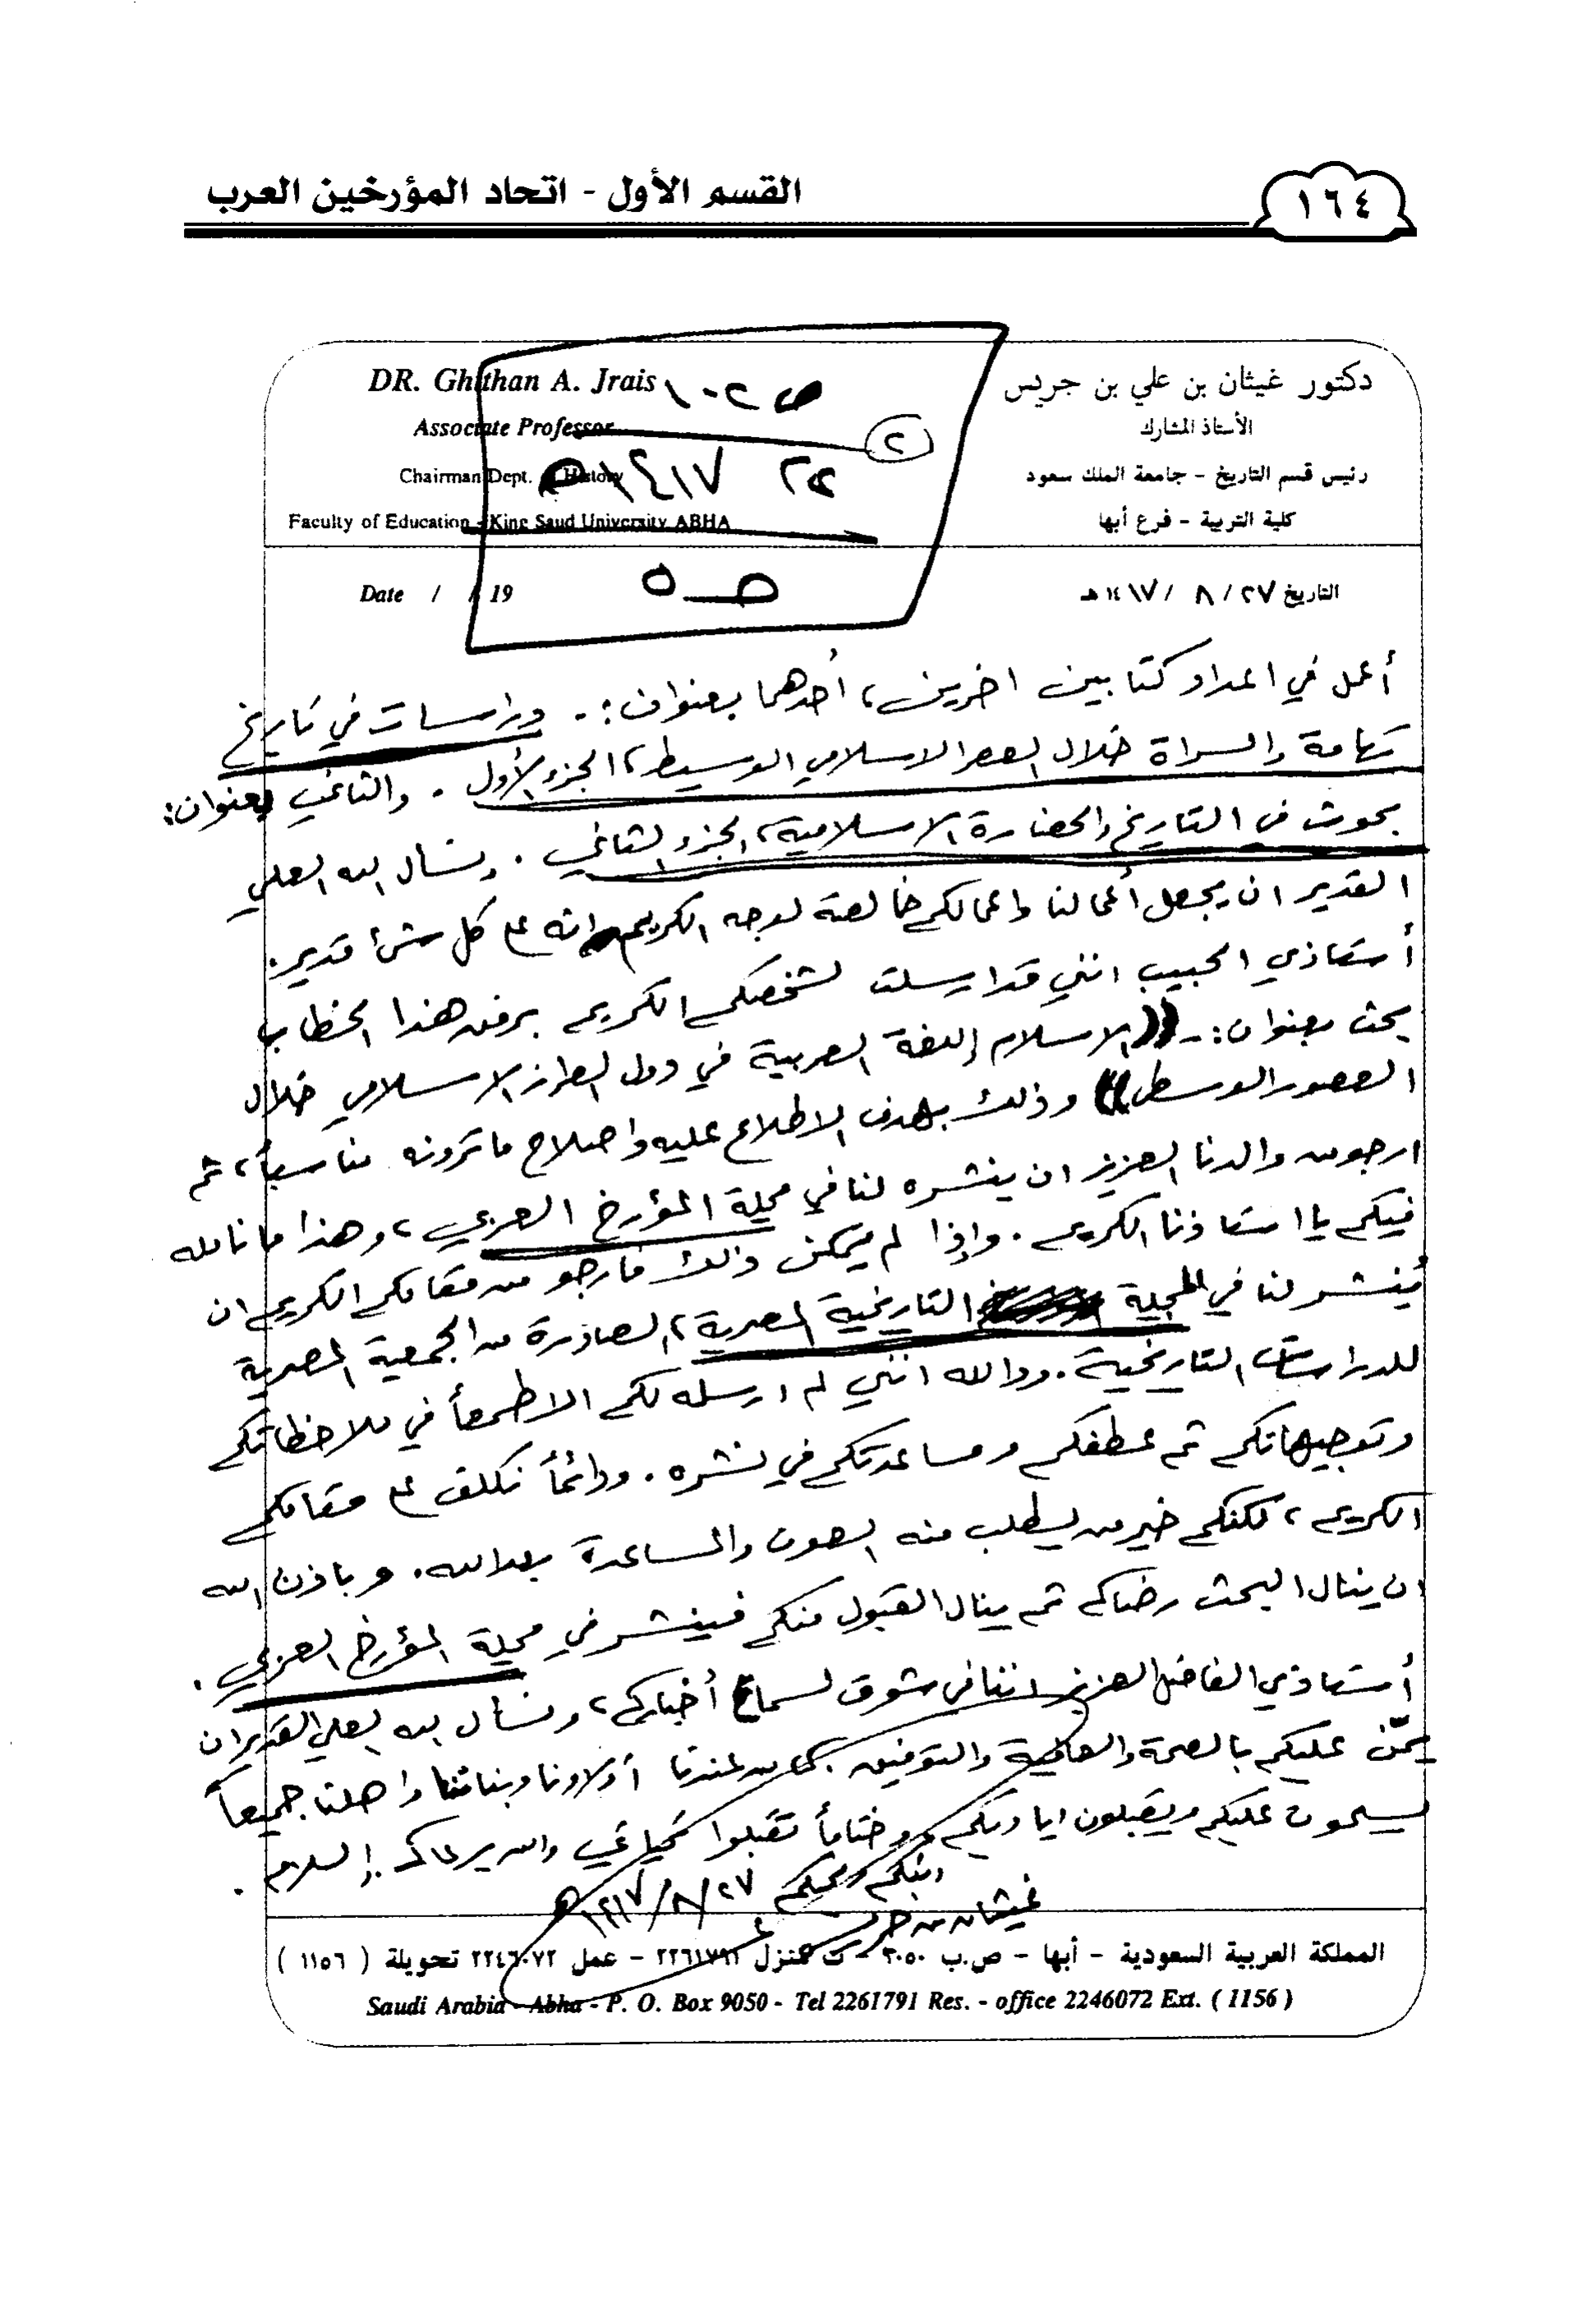 ١٦٤
القسم الأول - اتحاد المؤرخين العرب
دكتور غيثان بن علي بن جريس
الأستاذ المشارك
رئيس قسم التاريخ - جامعة الملك سعود
كلية التربية - فرع أبها
DR. Ghithan A. Jrais
Associate Professor
Chairman Dept. of History
Faculty of Education - King Saud University ABHA
ص ١٠٢
٢
١٤١٧هـ
التاريخ ٢٧/ ٨ /١٤١٧هـ
Date / / 19
أعمل في اعداد كتابين اخرين، أحدهما بعنوان :- دراسات في تاريخ
تهامة والسراة خلال العصر الاسلامي الوسيط، الجزء الأول . والثاني بعنوان:
بحوث في التاريخ والحضارة الاسلامية، الجزء الثاني . ونسأل الله العلي
القدير ان يجعل أعمالنا واعمالكم خالصة لوجه الكريم انه على كل شئ قدير.
أستاذي الحبيب انني قد ارسلت لشخصكم الكريم برفق هذا الخطاب
بحث بعنوان :- ((الاسلام واللغة العربية في دول الطراز الاسلامي خلال
العصور الوسطى)) وذلك بهدف الاطلاع عليه واصلاح ماترونه مناسباً، ثم
ارجو من والدنا العزيز ان ينشره لنا في مجلة المؤرخ العربي، وهذا ما نامله
فيكم يا استاذنا الكريم . وإذا لم يتمكن ذلك فارجو من مقامكم الكريم ان
يُنشر لنا في المجلة التاريخية المصرية، الصادرة من الجمعية المصرية
للدراسات التاريخية . ووالله انني لم ارسله لكم الا طمعاً في ملاحظاتكم
وتوجيهاتكم ثم عطفكم ومساعدتكم في نشره . ودائماً نكلف على مقامكم
الكريم، لكنكم خير من يطلب منه العون والمساعدة بعد الله . وباذن الله
ان ينال البحث رضاكم ثم ينال القبول منكم فينشر في مجلة المؤرخ العربي .
أستاذي الفاضل العزيز اننا في شوق لسماع أخباركم، ونسأل الله العلي القدير ان
يمّن عليكم بالصحة والعافية والتوفيق كما من عندنا أولادنا وبناتنا واهلنا جميعاً
يسلمون عليكم ويقبلون اياديكم وختاماً تقبلوا تحياتي والله يرعاكم والسلام .
ابنكم ومحبكم
غيثان بن جريس
٢٧/٨/١٤١٧هـ
المملكة العربية السعودية - أبها - ص.ب ٩٠٥٠ - ت منزل ٢٢٦١٧٩١ - عمل ٢٢٤٦٠٧٢ تحويلة ( ١١٥٦ )
Saudi Arabia - Abha - P. O. Box 9050 - Tel 2261791 Res. - office 2246072 Ext. ( 1156 )